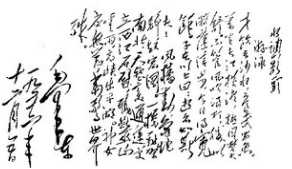 水调歌头
游泳
才饮长沙水又食武昌鱼
万里长江横渡极目楚
天舒不管风吹浪打胜似
闲庭信步今日得宽
余子在川上曰逝者如斯
夫 风樯动龟蛇
静起宏图一桥飞架
南北天堑变通途更
立西江石壁截断巫山
云雨高峡出平湖神女
应无恙当惊世界
殊
毛泽东
一九五六年
十二月五日